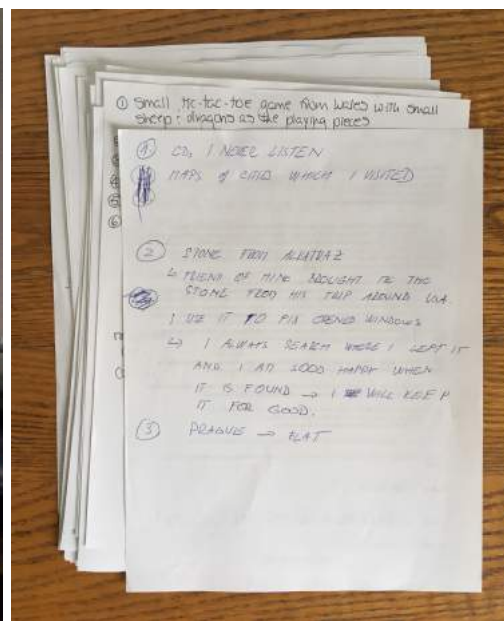 ① Small tic-tac-toe game from Wales with small
sheep & dragons as the playing pieces
⑥
① CDs I NEVER LISTEN
MAPS of CITIES WHICH I VISITED
② STONE FROM ALKATRAZ
↳ FRIEND OF MINE BROUGHT ME THE
STONE FROM HIS TRIP AROUND USA
I USE IT TO PIN OPENED WINDOWS
↳ I ALWAYS SEARCH WHERE I LEFT IT
AND I AM SOOO HAPPY WHEN
IT IS FOUND → I WILL KEEP
IT FOR GOOD.
③ PRAGUE → FLAT